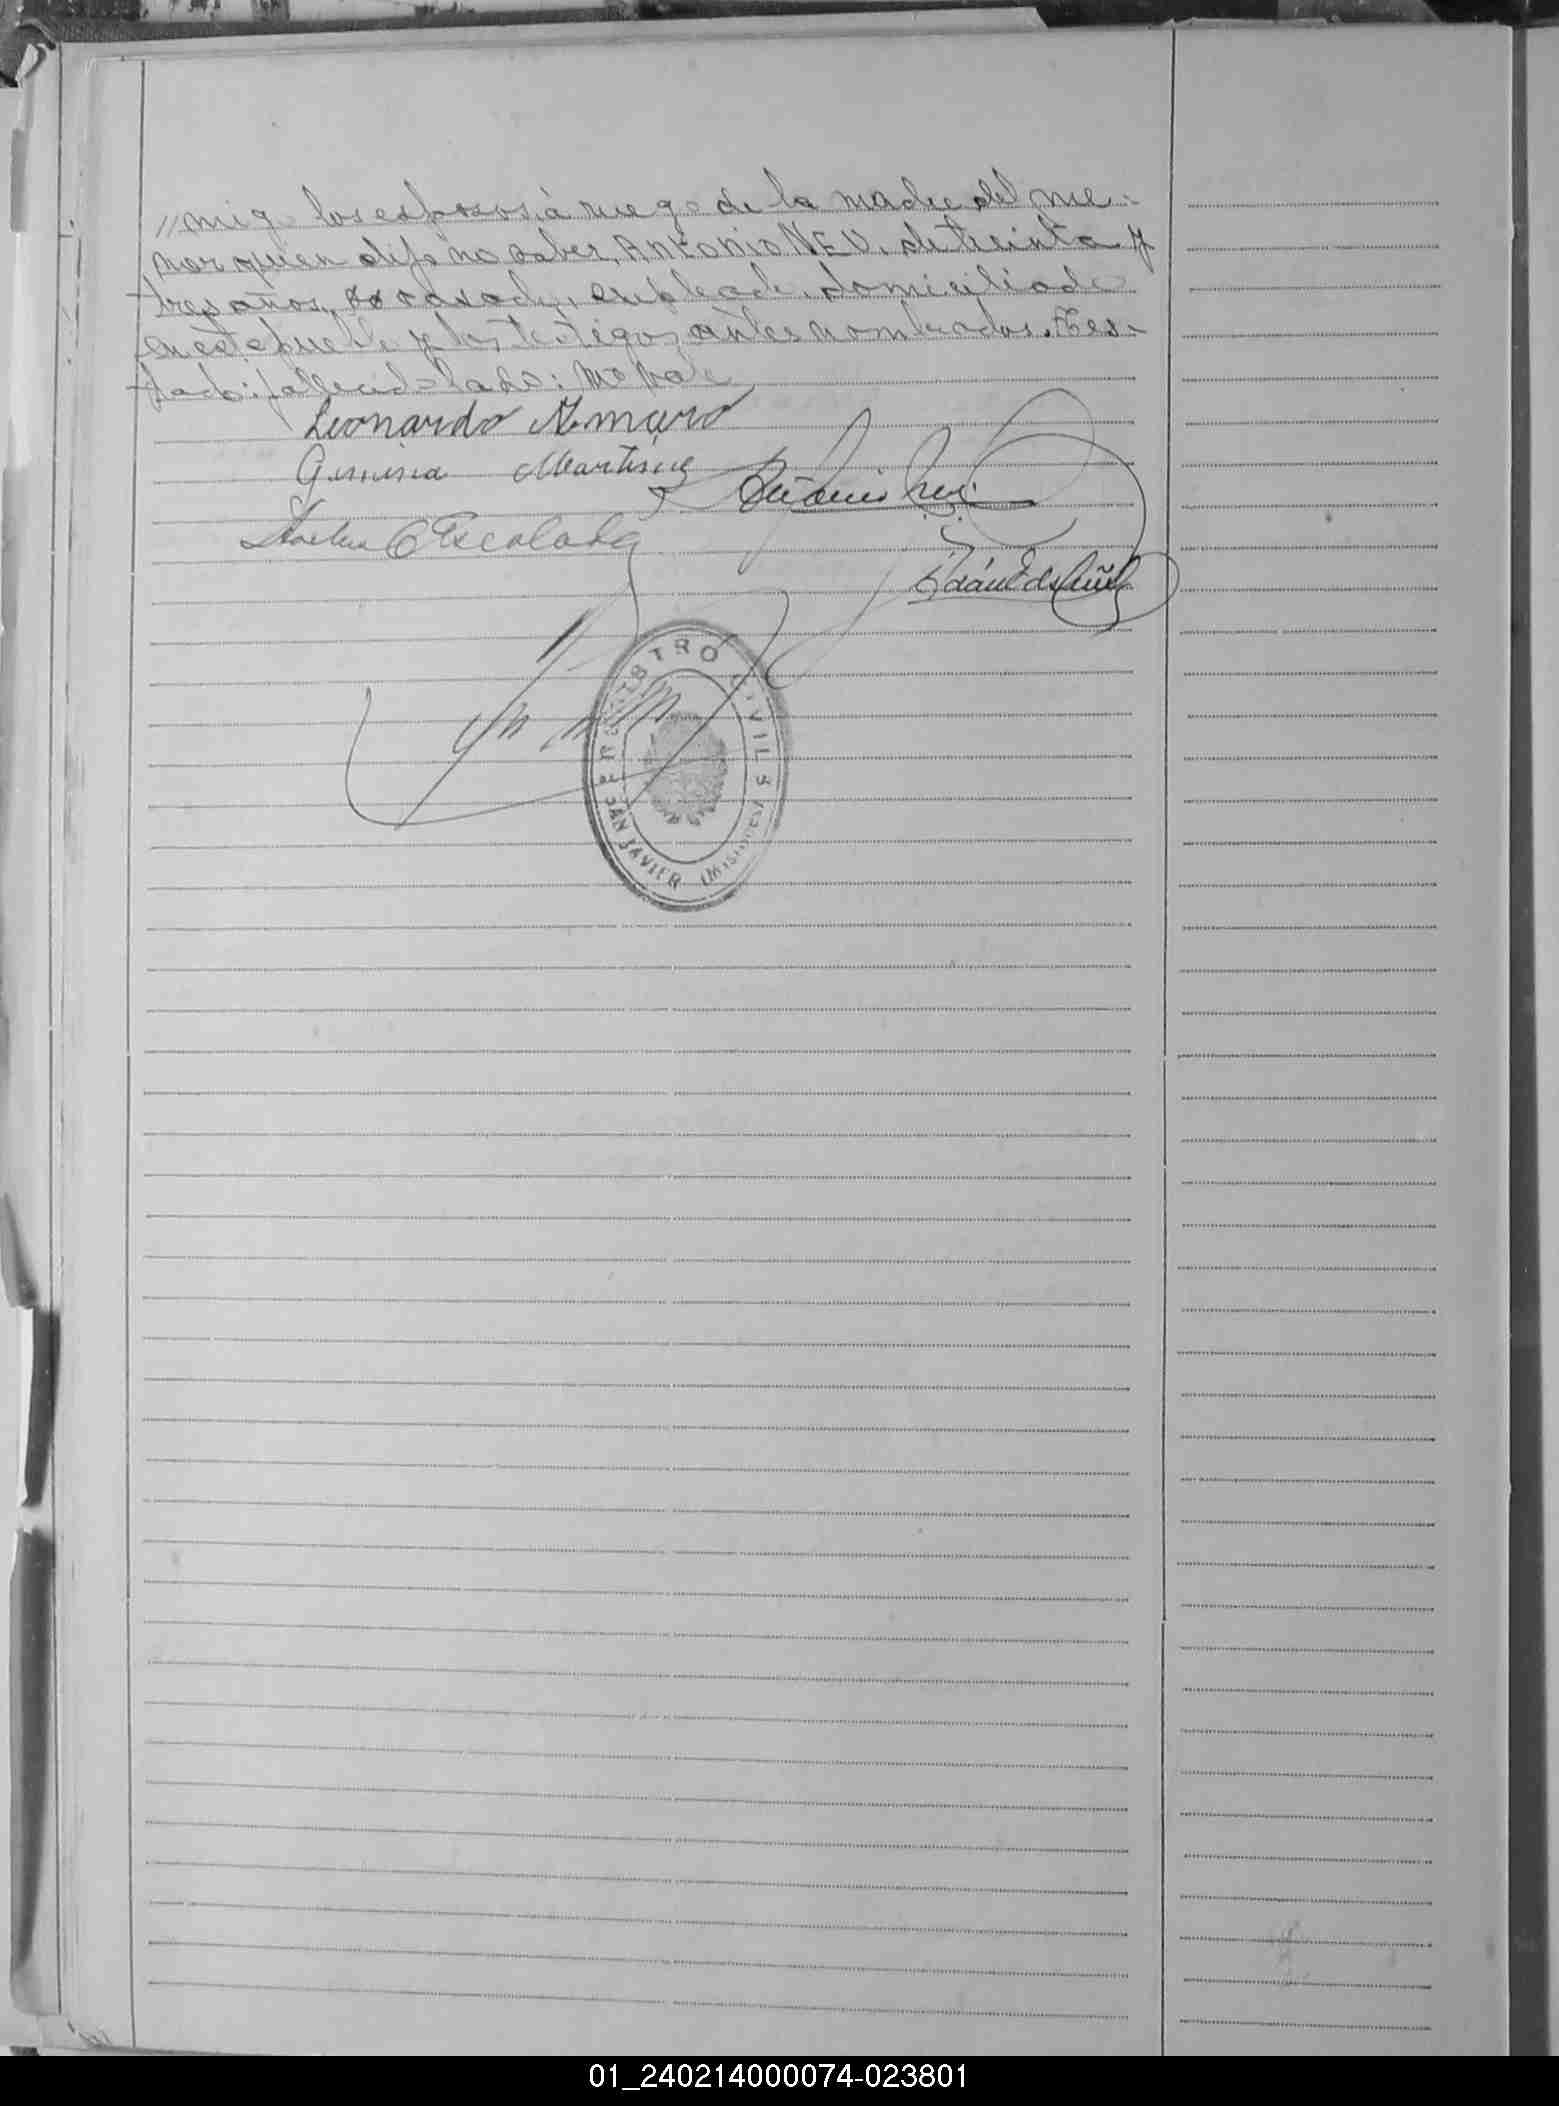 // migo los esposos, á ruego de la madre del me-
nor quien dijo no saber, ANTONIO NEU, de treinta y
tres años, casado, empleado, domiciliado
en este pueblo y los testigos antes nombrados. Tes-
tado: fallecido = lado: no vale
Leonardo Amaro
Gumersina Martinez
Antonio Neu
Escalada
REGISTRO CIVIL
SAN JAVIER (MISIONES)
01_240214000074-023801